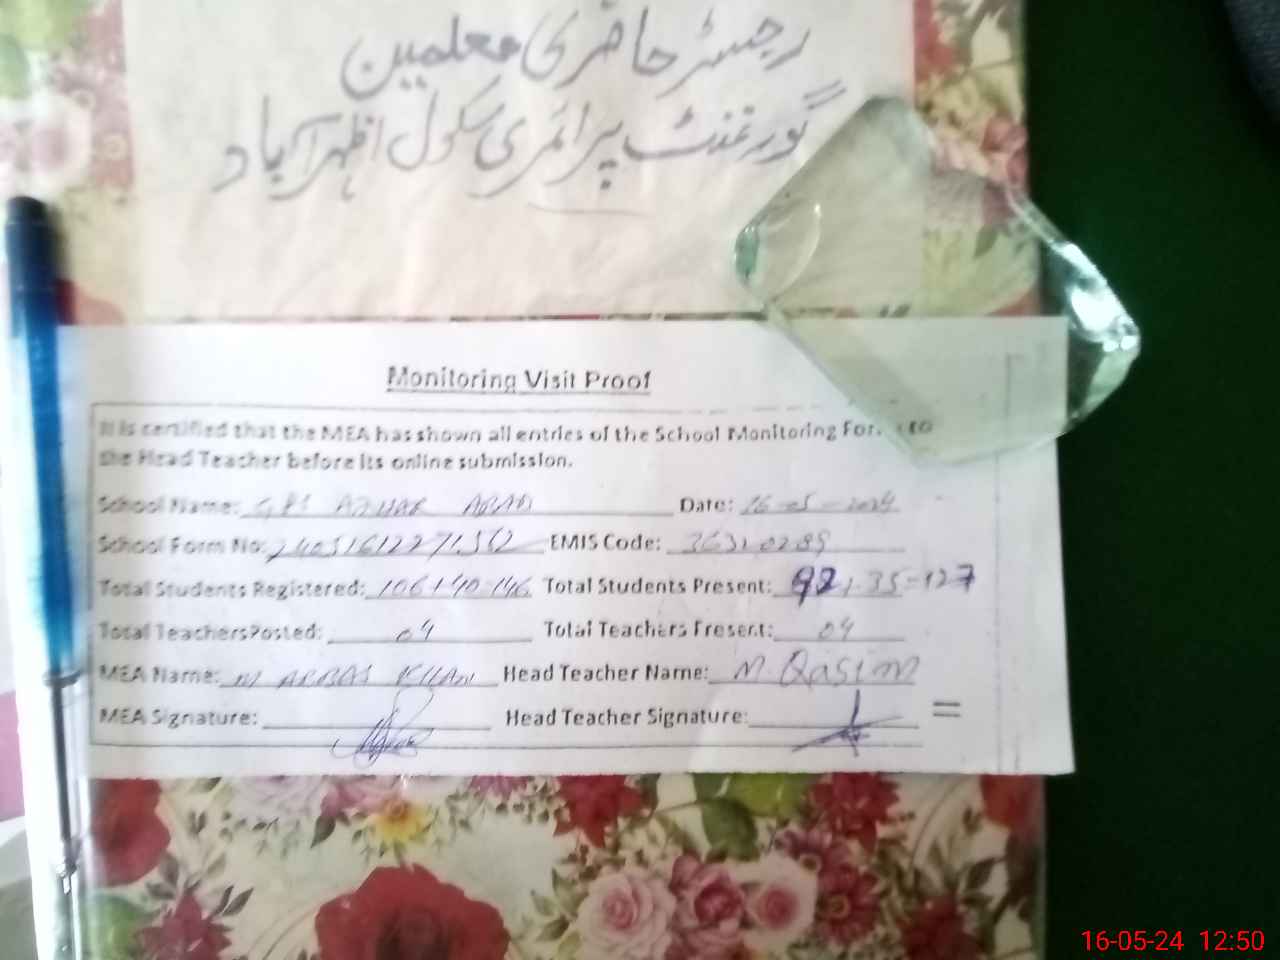 رجسٹر حاضری معلمین
گورنمنٹ پرائمری سکول اظہر آباد
Monitoring Visit Proof
It is certified that the MEA has shown all entries of the School Monitoring Form to
the Head Teacher before its online submission.
School Name: GPS AZHAR ABAD Date: 16-05-2024
School Form No: EMIS Code: 36310289
Total Students Registered: 106+40-146 Total Students Present: 92+35-127
Total TeachersPosted: 04 Total Teachers Present: 04
MEA Name: M ABBAS KHAN Head Teacher Name: M Qasim
MEA Signature: Head Teacher Signature:
16-05-24 12:50